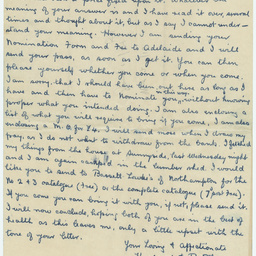 meaning of your answer is and I have read it over several
times and thought about it, but as I say I cannot under-
stand your meaning. However I am sending your
Nomination Form and Fee to Adelaide and I will
send your pass, as soon as I get it. You can then
please yourself whether you come or when you come.
I am sorry that I should have been out here as long as I
have and then have to Nominate you, without knowing
proper what you intended doing. I am also enclosing a
list of what you will require to bring if you come, I am also
enclosing a M.O for £4. I will send more when I draw my
pay as I do not want to withdraw from the bank. I fetched
my things from the house at Sunnyside, last Wednesday night
and I am again in the Lumber shed. I would
like you to send to Bassett Lowke's of Northampton for the
No 2 & 3 catalogue (free) or the complete catalogue
If you come you can bring it with you, if not, please send it.
I will now conclude, hoping both of you are in the best of
health as this leaves me, only a little upset with the
tone of your letter.
Your Loving & Affectionate